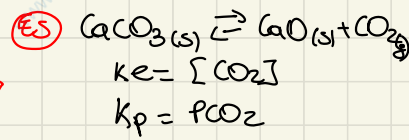 ES CaCO₃(s) ⇌ CaO(s) + CO₂(g)
Ke = [CO₂]
Kp = PCO₂